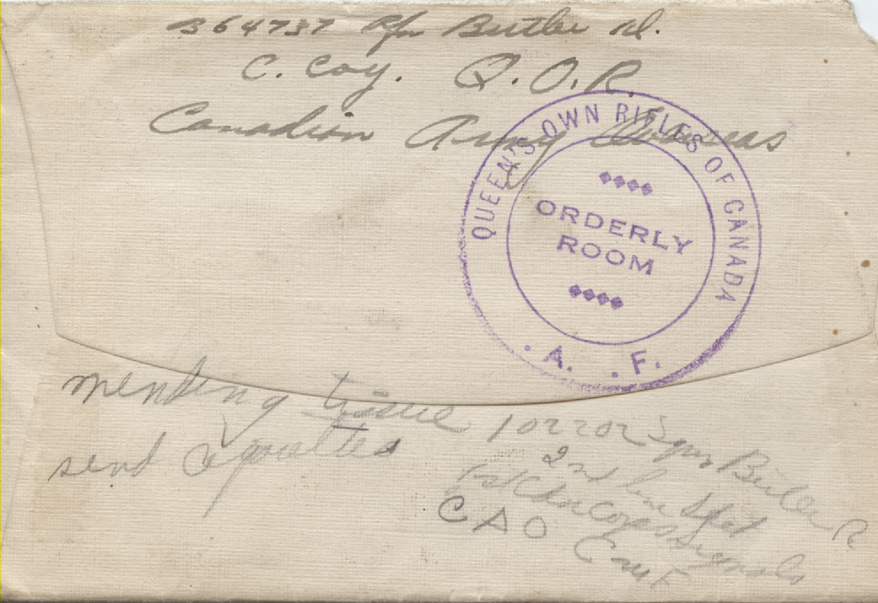 B64737 Rfn Butler D.
C. Coy. Q. O. R.
Canadian Army Overseas
QUEEN'S OWN RIFLES OF CANADA
ORDERLY
ROOM
. A. . F.
mending tissue
send cigarettes
Butler R
2nd line
1st Cdn Corps Signals
CAO CMF